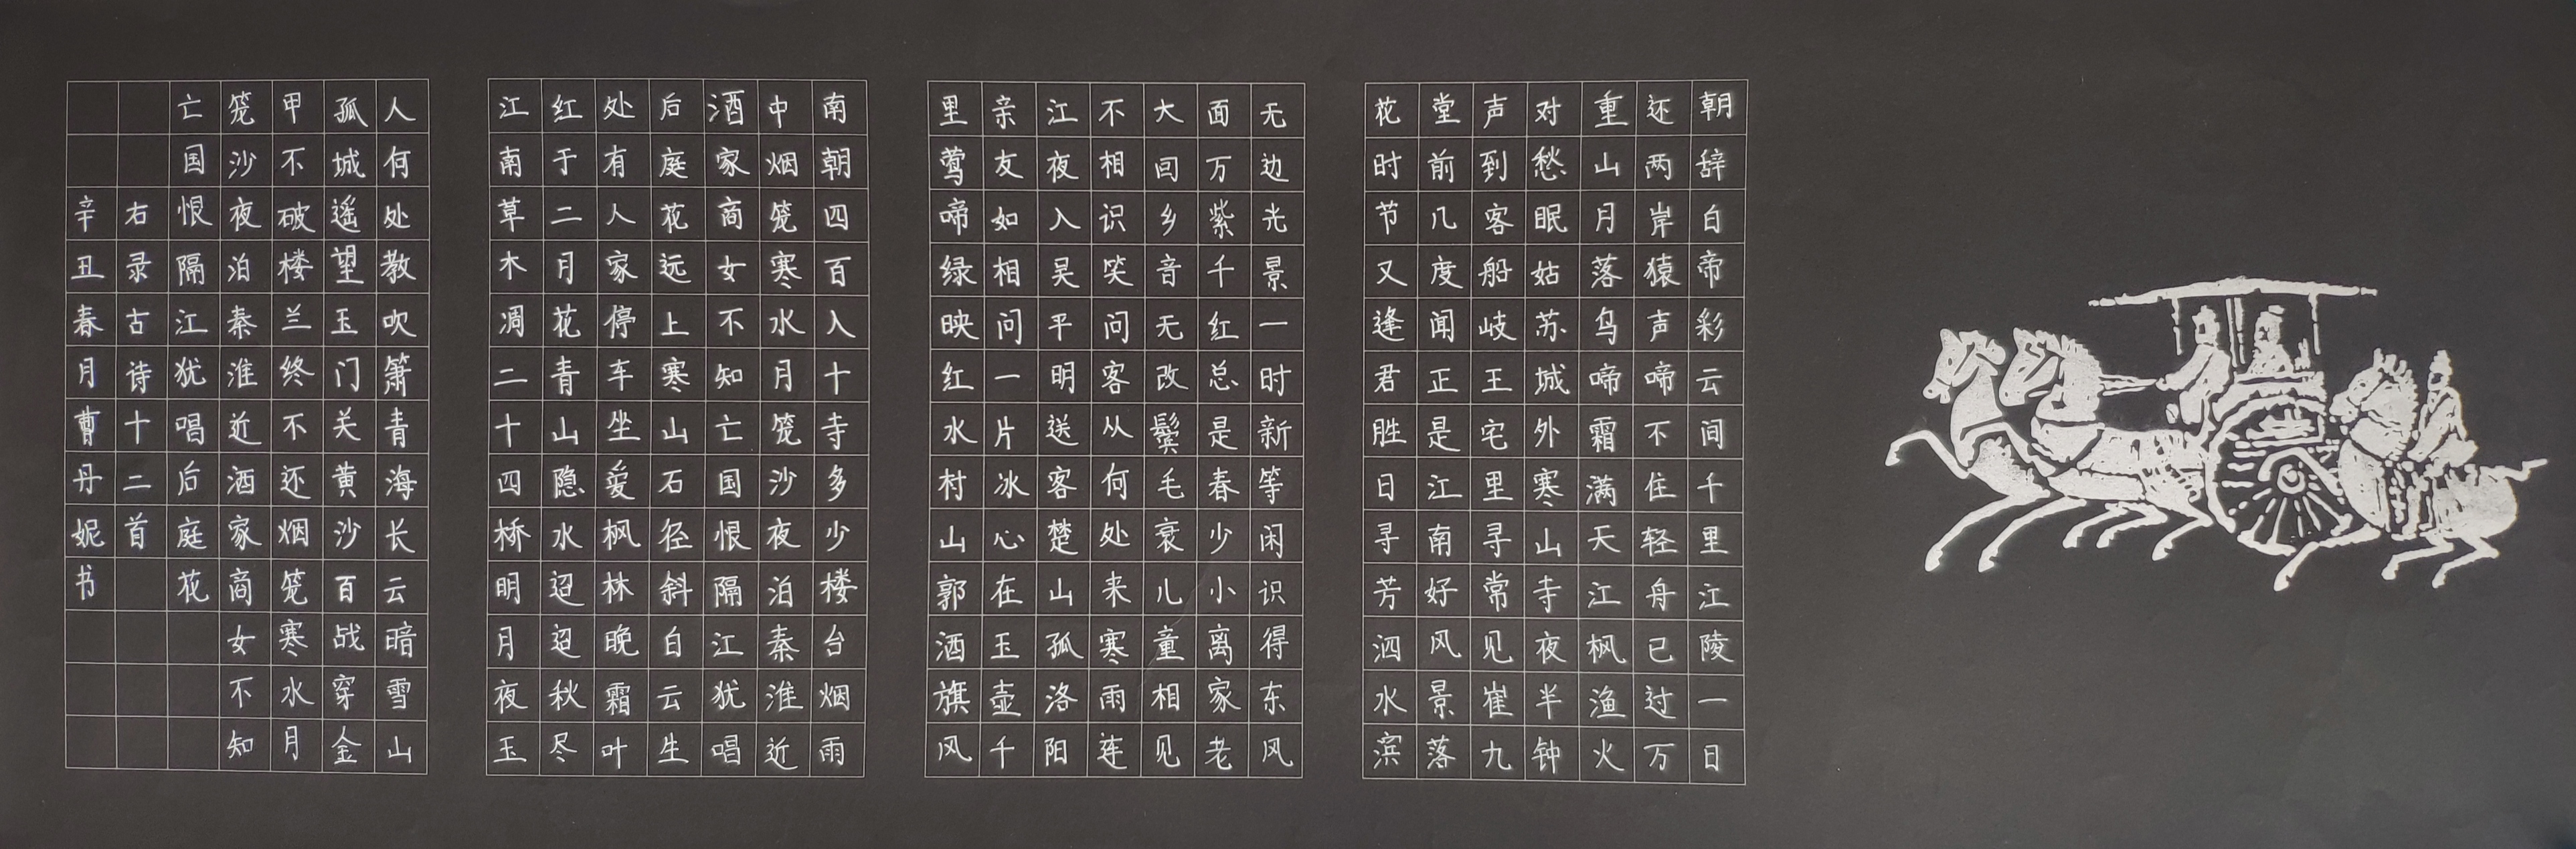 朝辞白帝彩云间千里江陵一日
还两岸猿声啼不住轻舟已过万
重山月落乌啼霜满天江枫渔火
对愁眠姑苏城外寒山寺夜半钟
声到客船岐王宅里寻常见崔九
堂前几度闻正是江南好风景落
花时节又逢君胜日寻芳泗水滨
无边光景一时新等闲识得东风
面万紫千红总是春少小离家老
大回乡音无改鬓毛衰儿童相见
不相识笑问客从何处来寒雨连
江夜入吴平明送客楚山孤洛阳
亲友如相问一片冰心在玉壶千
里莺啼绿映红水村山郭酒旗风
南朝四百入十寺多少楼台烟雨
中烟笼寒水月笼沙夜泊秦淮近
酒家商女不知亡国恨隔江犹唱
后庭花远上寒山石径斜白云生
处有人家停车坐爱枫林晚霜叶
红于二月花青山隐水迢迢秋尽
江南草木凋二十四桥明月夜玉
人何处教吹箫青海长云暗雪山
孤城遥望玉门关黄沙百战穿金
甲不破楼兰终不还烟笼寒水月
笼沙夜泊秦淮近酒家商女不知
亡国恨隔江犹唱后庭花
右录古诗十二首
辛丑春月曹丹妮书